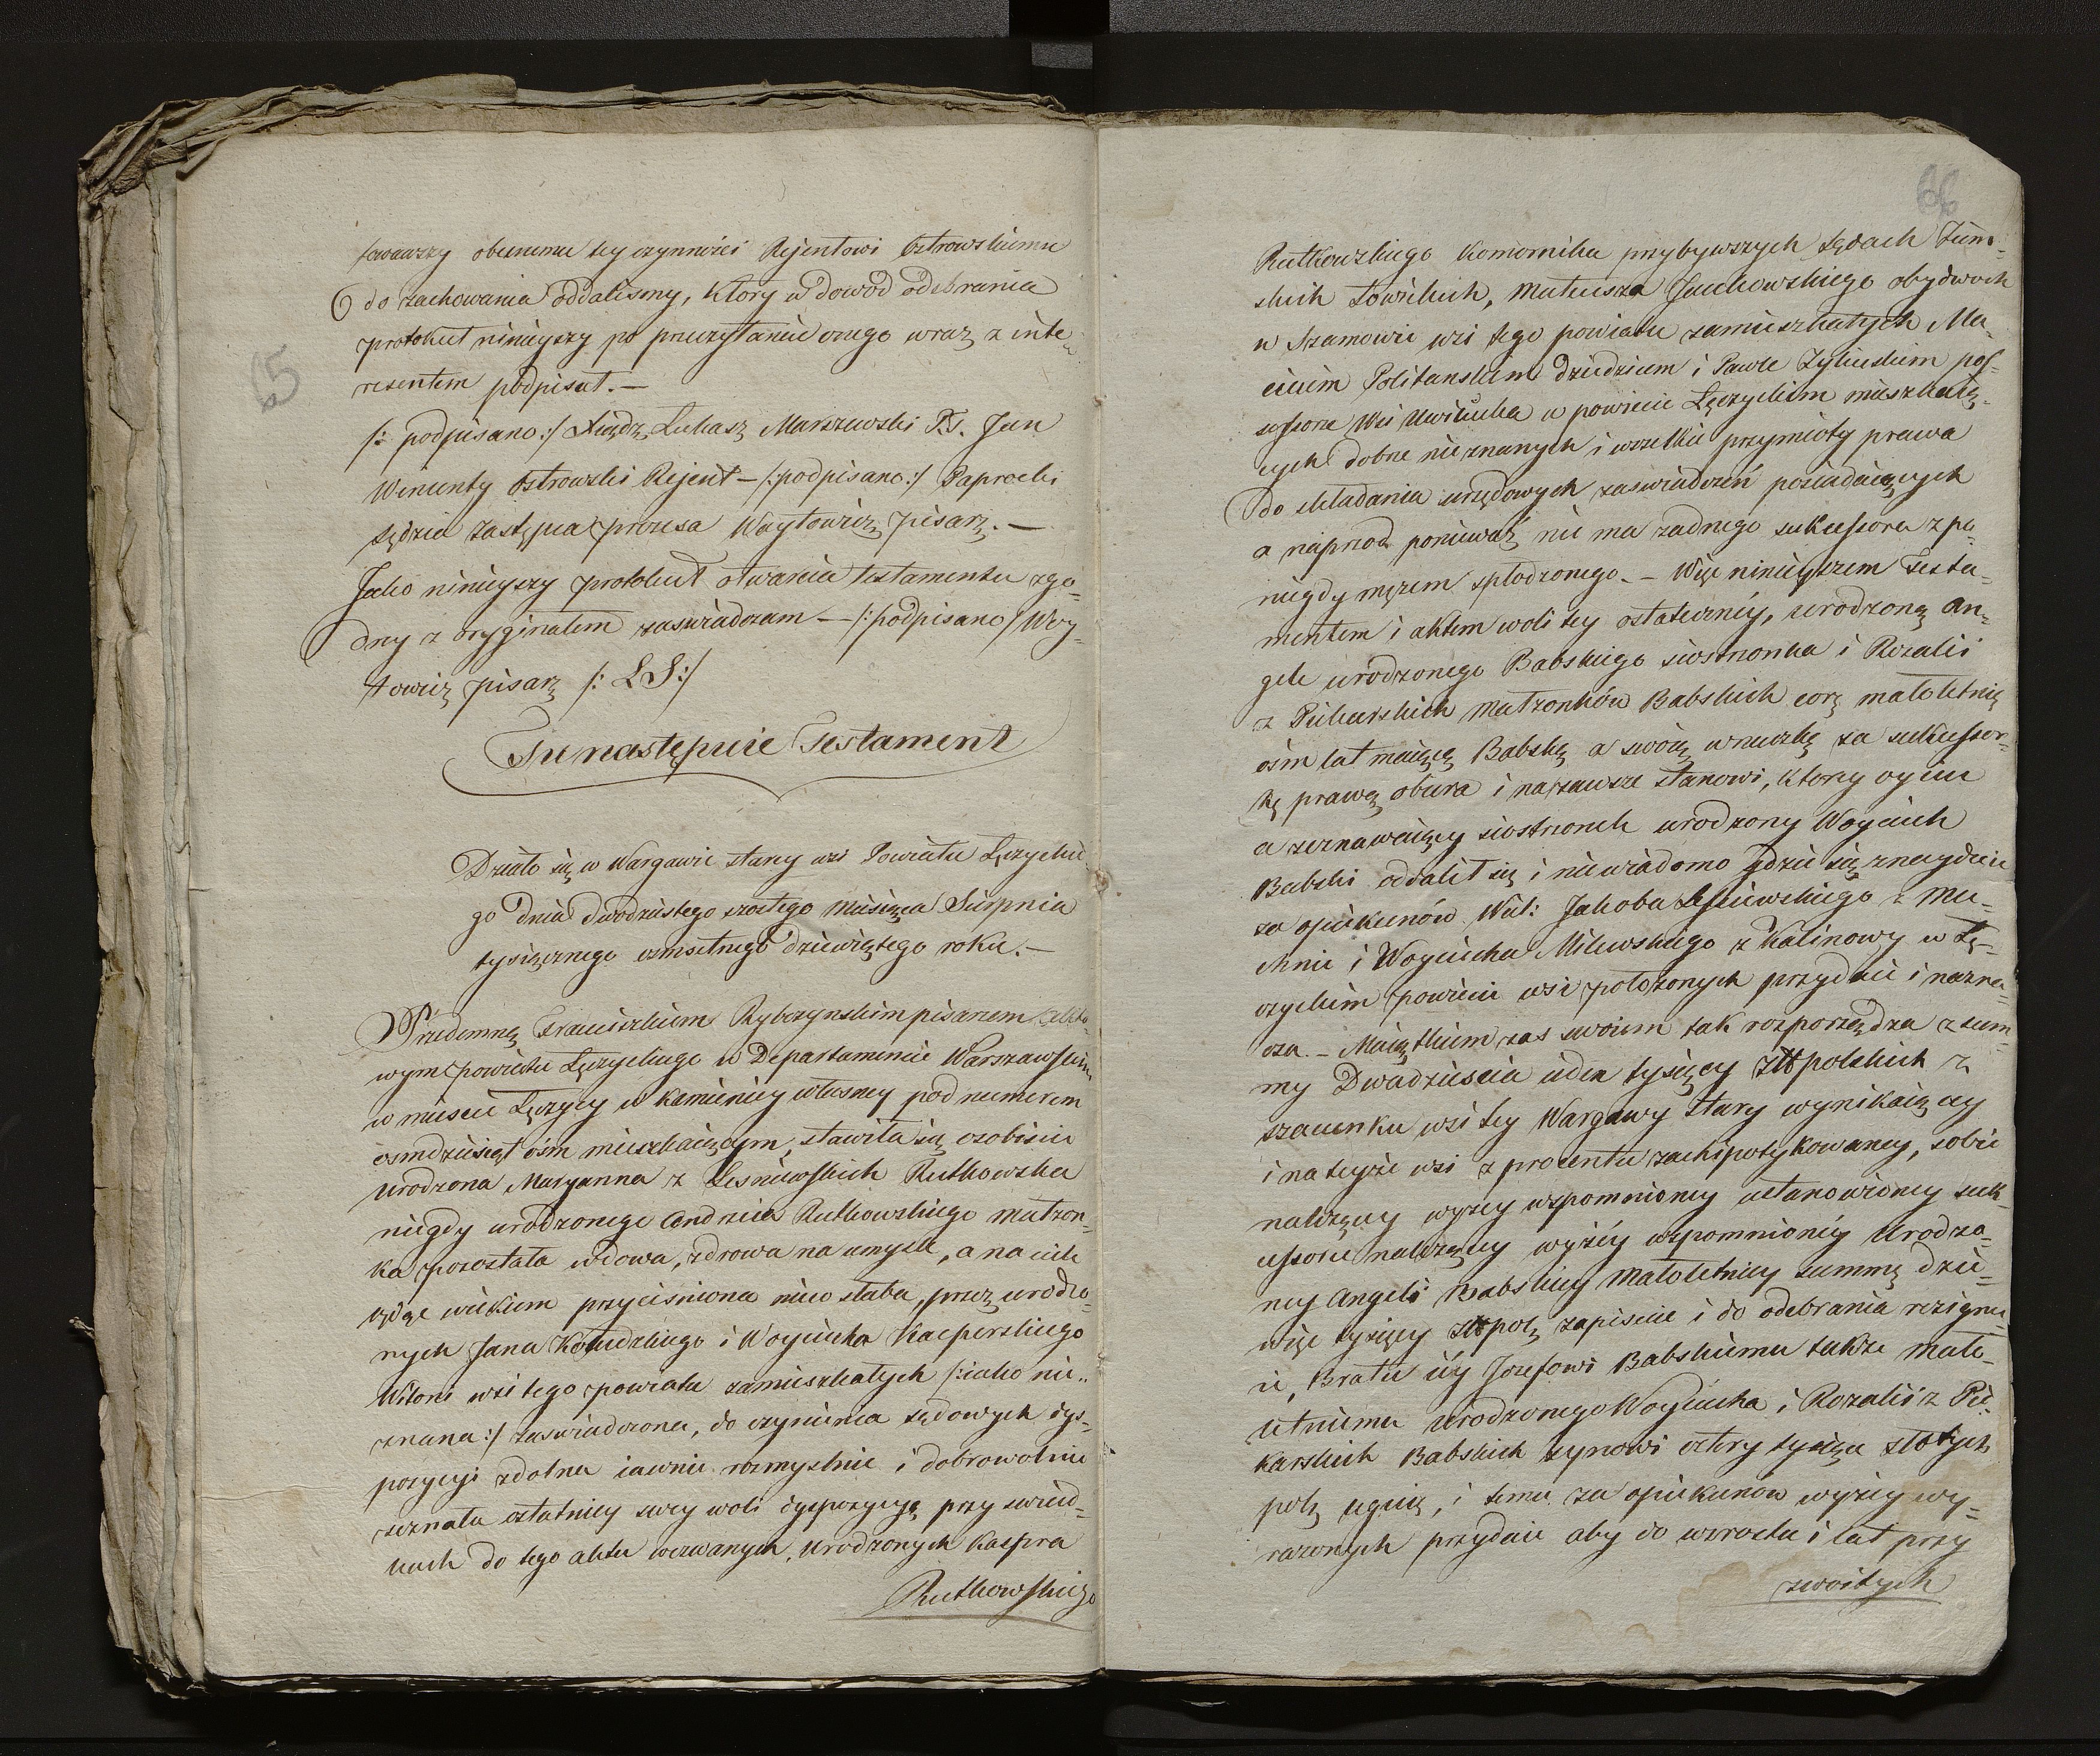 sowawszy obecnemu tey czynności Rejentowi Ostrowskiemu
do zachowania oddaliśmy, który w dowód odebrania
protokuł ninieyszy po przeczytaniu onego wraz z inte-
resentem podpisał. —
/: podpisano :/ Xiądz Łukasz Marszewski Jan
Wincenty Ostrowski Rejent — /: podpisano :/ Paprocki
sędzia zastępca prezesa Woytowicz pisarz. —
Jako ninieyszy protokuł otwarcia testamentu zgo-
dny z oryginałem zaświadczam — /: podpisano / Woy-
towicz pisarz /: LS :/
Tu następuie Testament
Działo się w Wargawie stary wsi Powiatu Łęczyckie
go dnia dwódziestego szóstego Miesiąca Sierpnia
tysiącznego osmsetnego dziewiątego roku. —
Przedemną Franciszkiem Rybczynskim pisarzem akto-
wym powiatu Łęczyckiego w Departamencie Warszawskim
w mieście Łęczycy w kamienicy własney pod numerem
ośmdziesiąt óśm mieszkaiącym, stawiła się osobiście
urodzona Maryanna z Lesniewskich Rutkowska
niegdy urodzonego Andrzeia Rutkowskiego małżon-
ka pozostała wdowa, zdrowa na umyśle, a na ciele
będąc wiekiem przyciśniona nieco słaba, przez urodzo-
nych Jana Kołudzkiego i Woyciecha Kacperskiego
Witoni wsi tego powiatu zamieszkałych /: iako nie-
znana :/ zaświadczona, do czynienia sądowych dys-
pozycyi zdolna iawnie rozmyślnie i dobrowolnie
zeznała ostatniey swey woli dyspozycyą przy świad-
kach do tego aktu wezwanych, urodzonych Kaspra
Rutkowskiego
65
66
Rutkowskiego Komornika przybywszych sądach Ziem-
skich Łowickich, Mateusza Jackowskiego obydwoch
w Szamowie wsi tego powiatu zamieszkałych Ma-
cieiem Politanskim dziedzicem i Pawle Zyliuskim pos-
sessorze Wsi w powiecie Łęczyckim mieszkaią-
cych dobrze nieznanych i wszelkie przymioty prawa
do składania urzędowych zaświadczeń posiadaiących
a naprzod ponieważ nie ma zadnego sukcessora z po-
niegdy mężem spłodzonego. — Więc ninieyszem Testa-
mentem i aktem woli tey ostateczney, urodzoną An-
gele urodzonego Babskiego siostrzonka i Rozalii
z Piekarskich małżonków Babskich corę małoletnią
ośm lat maiącą Babską a swoią wnuczkę za sukcessor-
kę prawą obiera i nazawsze stanowi, ktorey oyciec
a zeznawaiącey siostrzonek urodzony Woyciech
Babski oddalił się i niewiadomo gdzie się znayduie
za opiekunów Wiel: Jakoba Leśniewskiego z Mę-
chnie i Woyciecha Milewskiego z Kalinowy w Łę-
czyckim powiecie wsi położonych przydaie i nazna-
cza. — Maiątkiem zas swoiem tak rozporządza z sum-
my Dwadzieścia ieden tysięcy złł polskich z
szacunku wsi tey Wargawy Stary wynikaiącey
i na teyże wsi z procentu zachipotykowaney, sobie
należącey wyżey wspomnioney ustanowioney suk-
cessorce należącey wyżéy wspomnionéy Urodzo-
ney Angeli Babskiey Małoletniey summę dzie-
więc tysięcy złł pols zapisuie i do odebrania rezignu-
ie, Bratu iéy Jozefowi Babskiemu także Mało-
letniemu urodzonego Woyciecha i Rozalii z Pie-
karskich Babskich synowi cztery tysiące złotych
pols leguie, i temu za opiekunów wyżéy wy-
rażonych przydaie aby do wzrostu i lat przy
zwoitych